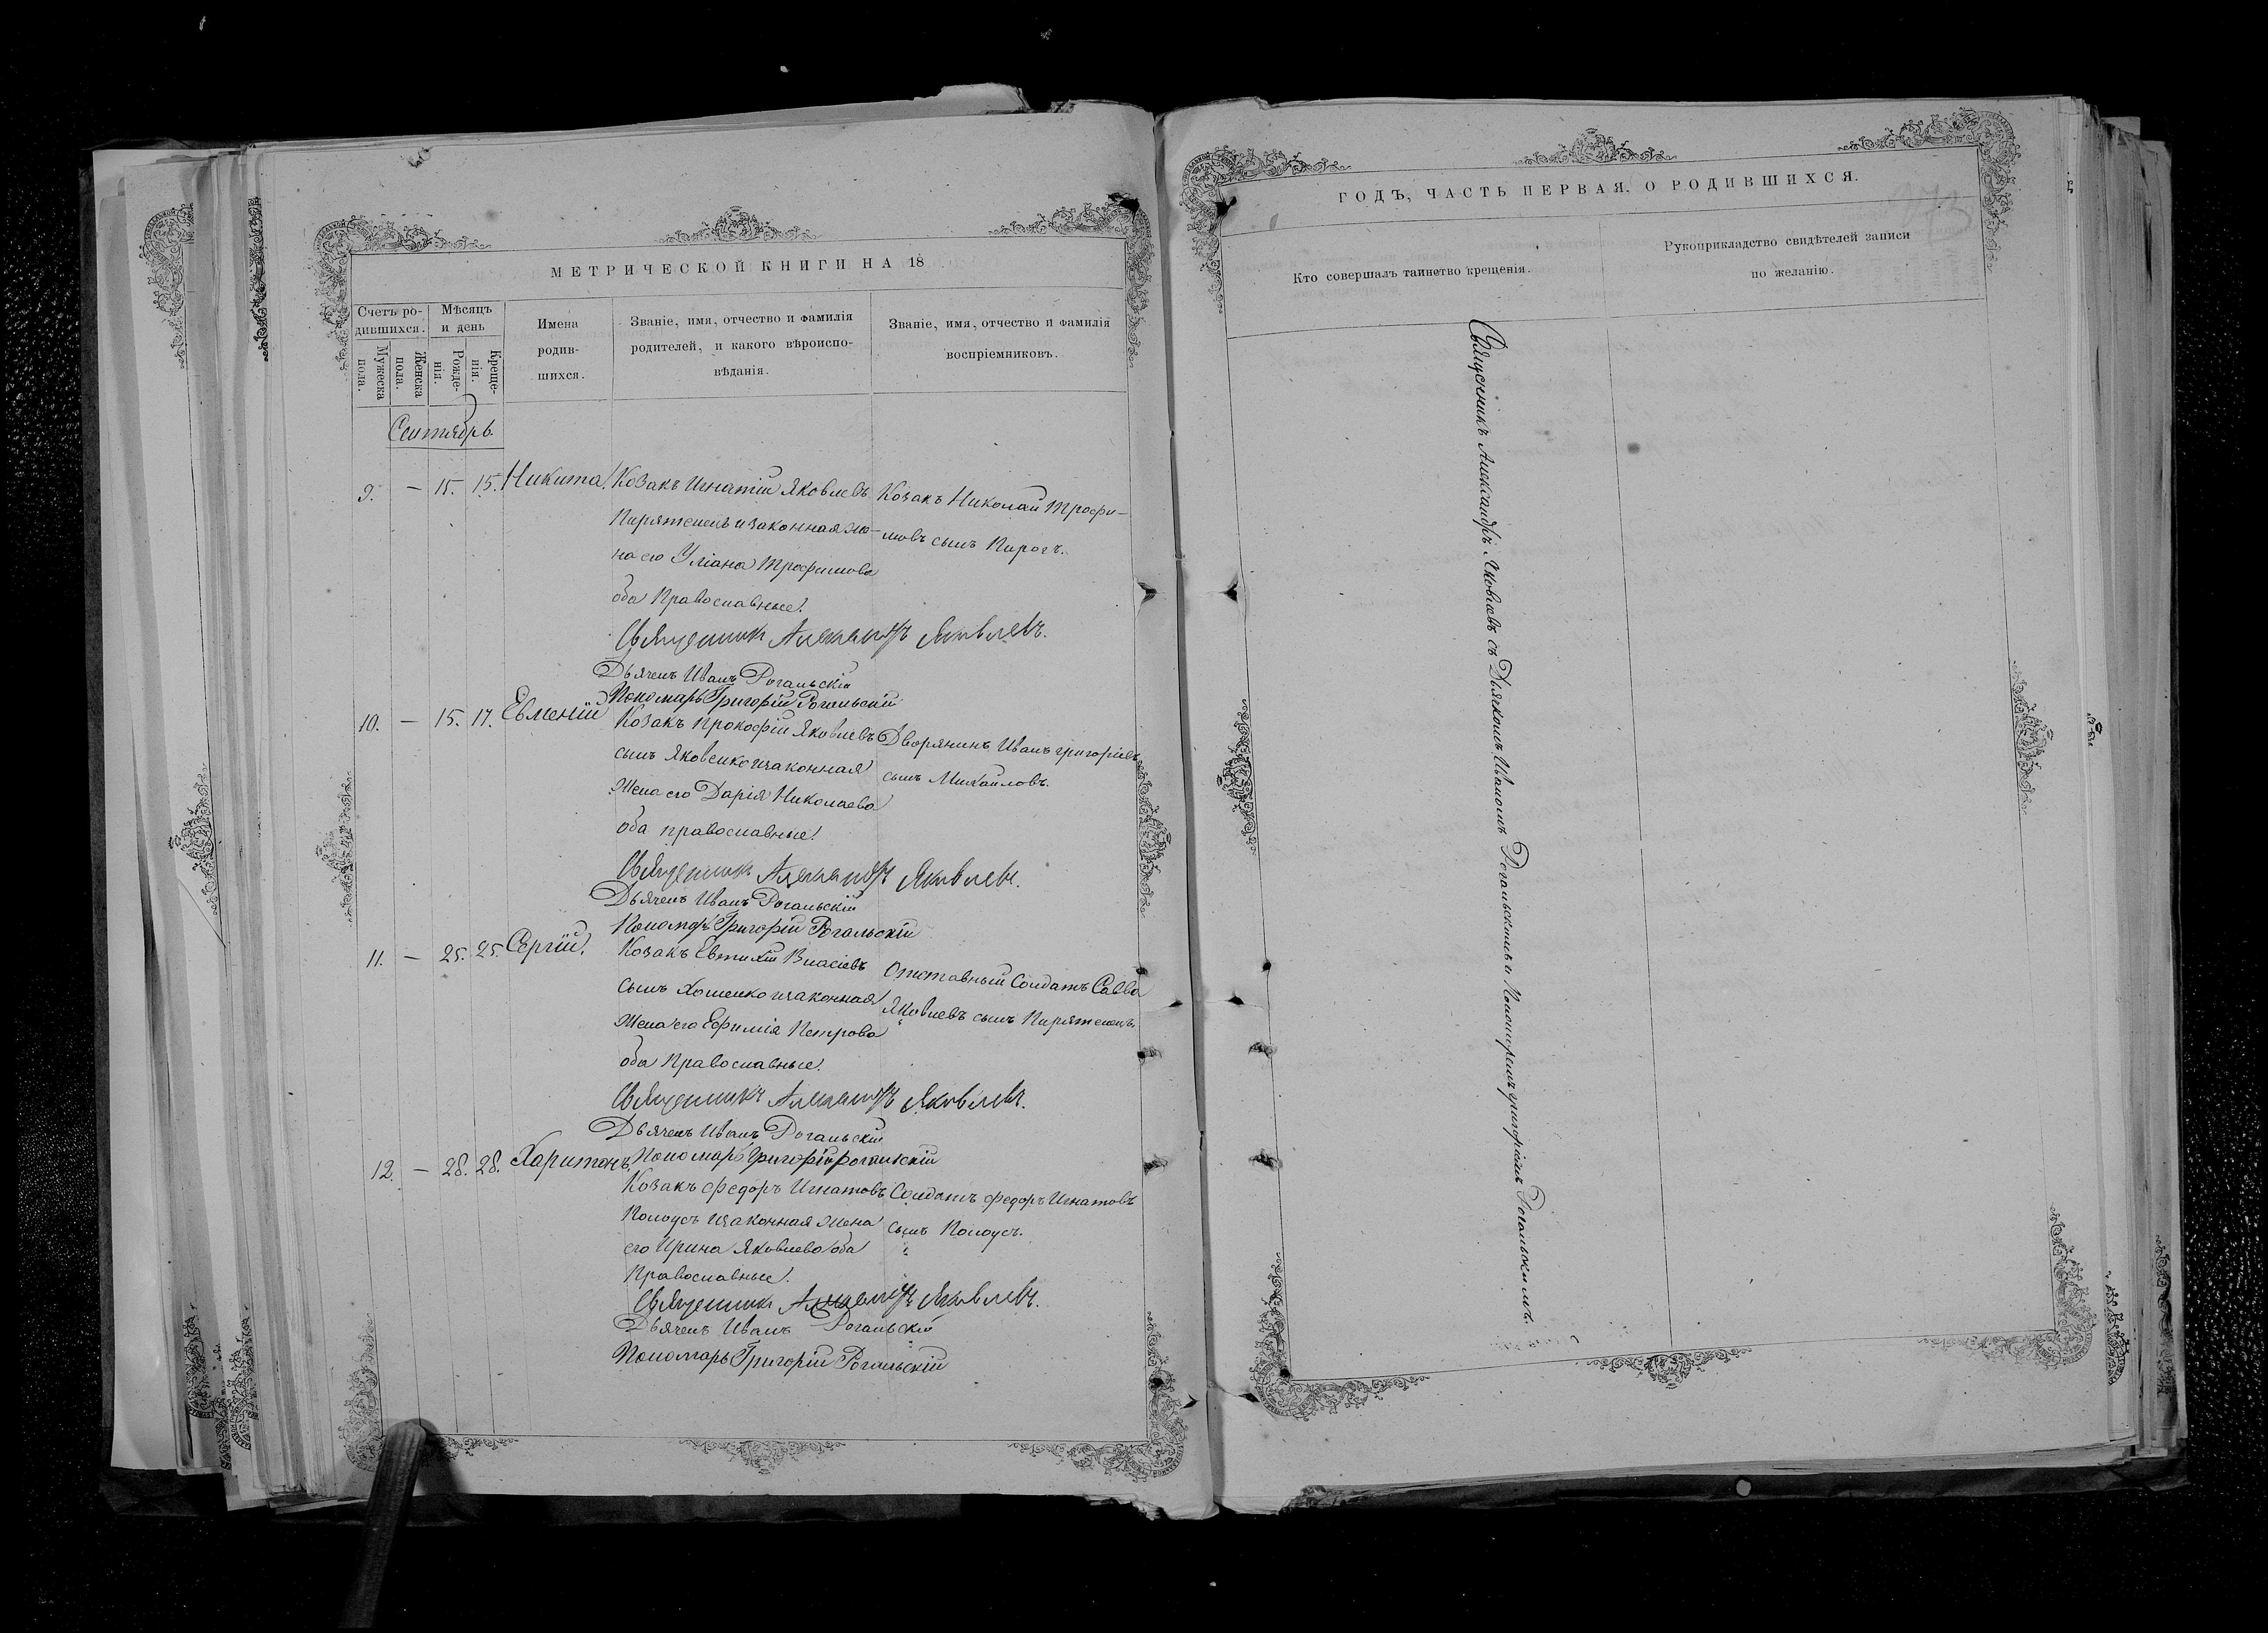 МЕТРИЧЕСКОЙ КНИГИ НА 18
Счетъ ро-
дившихся.
Мѣсяцъ
и день
Имена
родив-
шихся.
Званіе, имя, отчество и фамилія
родителей, и какого вѣроиспо-
вѣданія.
Званіе, имя, отчество и фамилія
воспріемниковъ.
Мужеска
пола.
Женска
пола.
Рожде-
нія.
Креще-
нія.
Сентябрь.
9. — 15. 15. Никита.
Козакъ Игнатій Яковлевъ
Пирятенець и законная же-
на его Уліана Трофимова
оба Православные.
Козакъ Николай Трофи-
мовъ сынъ Пирогъ.
Священникъ Александръ Яковлевъ.
Дьячекъ Иванъ Рогальскій
Пономарь Григорій Рогальскій
10. — 15. 17. Евменій
Козакъ Прокофій Яковлевъ
сынъ Яковенко и законная
жена его Дарія Николаева
оба православные.
Дворянинъ Иванъ Григоріевъ
сынъ Михайловъ.
Священникъ Александръ Яковлевъ.
Дьячекъ Иванъ Рогальскій
Пономарь Григорій Рогальскій
11. — 25. 25. Сергій.
Козакъ Евтихій Власіевъ
сынъ Хоменко и законная
жена его Ефимія Петрова
оба Православные.
Отставный Солдатъ Савва
Яковлевъ сынъ Пирятенецъ
Священникъ Александръ Яковлевъ.
Дьячекъ Иванъ Рогальскій
Пономарь Григорій Рогальскій
12. — 28. 28. Харитонъ
Козакъ Федоръ Игнатовъ
Колоусъ и законная жена
его Ирина Яковлева оба
Православные.
Солдатъ Федоръ Игнатовъ
сынъ Колоусъ.
Священникъ Александръ Яковлевъ.
Дьячекъ Иванъ Рогальскій
Пономарь Григорій Рогальскій
ГОДЪ, ЧАСТЬ ПЕРВАЯ, О РОДИВШИХСЯ.
Кто совершалъ таинство крещенія.
Рукоприкладство свидѣтелей записи
по желанію.
Священникъ Александръ Яковлевъ съ Дьячкомъ Иваномъ Рогальскимъ и Пономаремъ Григоріемъ Рогальскимъ.